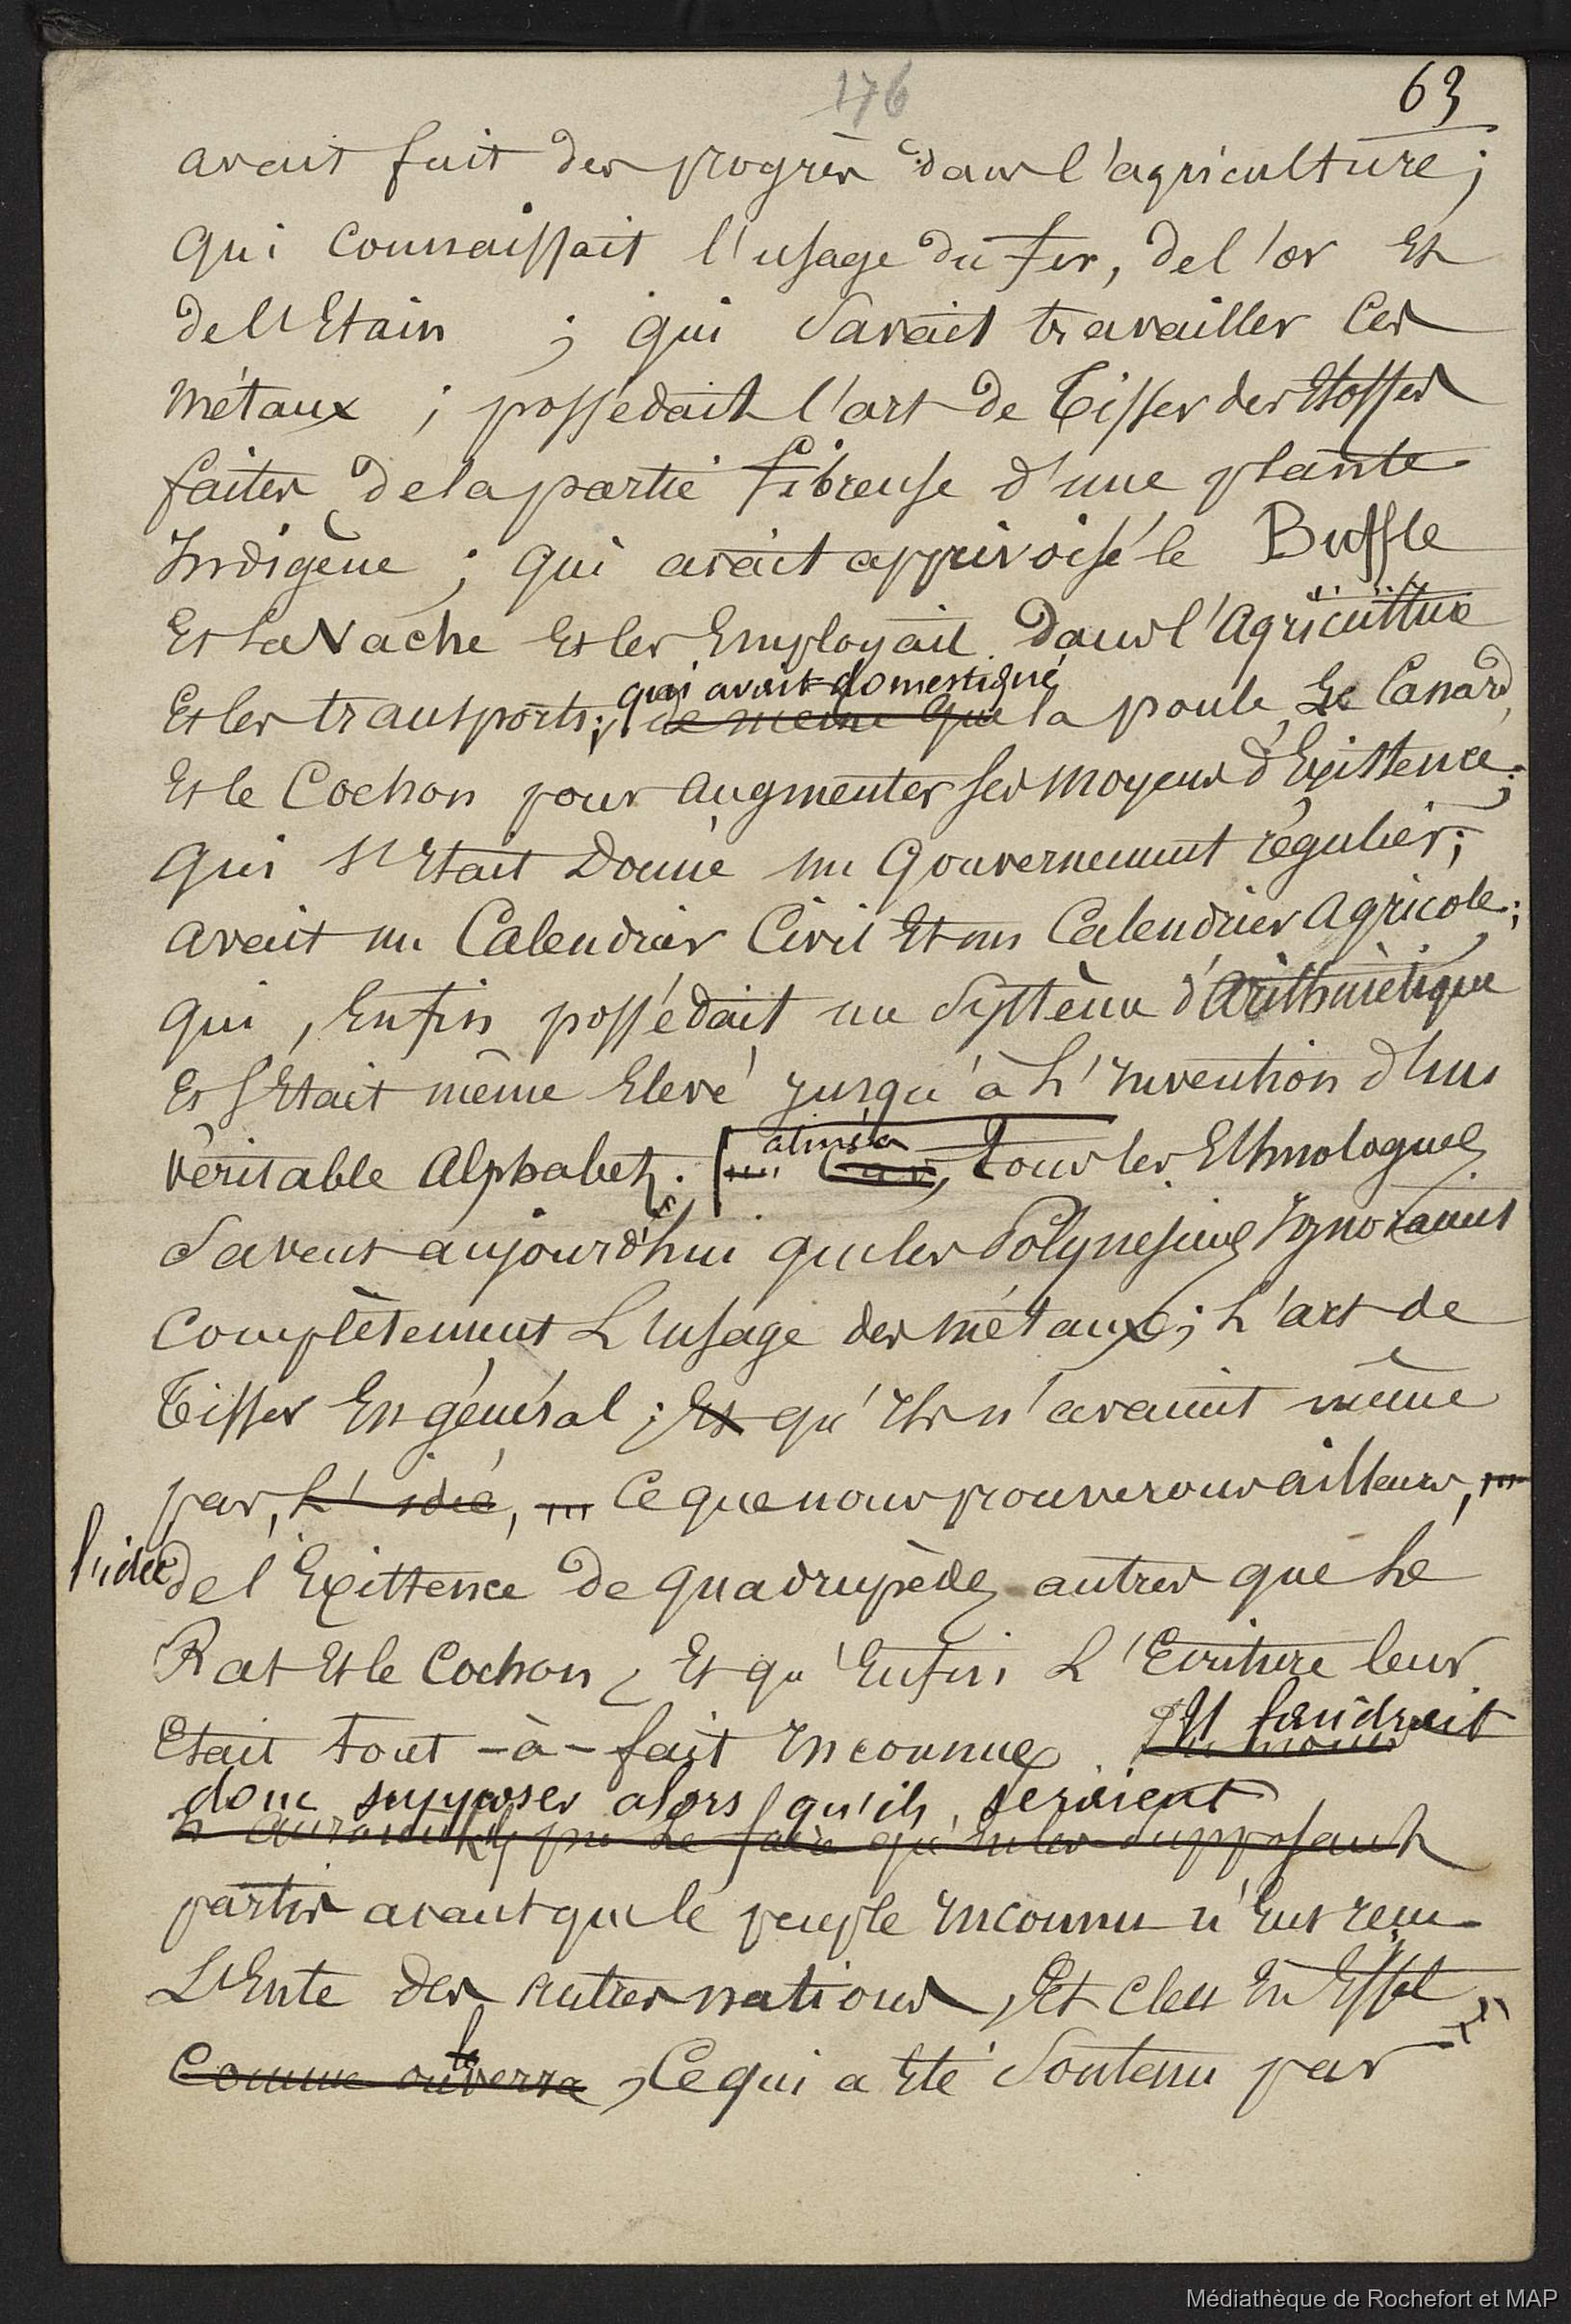 176
63
avait fait des progrès dans l'agriculture;
qui connaissait l'usage du fer, de l'or et
de l'Etain ; qui savait travailler ces
métaux ; possédait l'art de tisser des Etoffes
faites de la partie fibreuse d'une plante
Indigène ; qui avait apprivoisé le Buffle
Et la Vache et les Employait dans l'Agriculture
qui avait domestiqué
Et les transports; de même que la poule, Le Canard,
Et le Cochon pour augmenter ses moyens d'Existence;
qui s'Etait Donné un Gouvernement régulier;
avait un Calendrier Civil Et un Calendrier agricole;
qui, Enfin possédait un Système d'arithmètique
Et s'Etait même Elevé jusqu'à L'Invention d'un
alinéa
véritable Alphabet. Car, tous les Ethnologues
savent aujourd'hui que les Polynesiens Ignoraient
complètement L'usage des métaux; L'art de
tisser En général; Et qu'Ils n'avaient même
pas, L'idée, ce que nous prouverons ailleurs,
l'idée
de l'Existence de quadrupèdes autres que Le
Rat Et le Cochon, Et qu'Enfin L'Ecriture leur
Il faudrait
Etait tout-à-fait Inconnue.
donc supposer alors qu'ils seraient
n'auraient pu Le faire qu'en les supposant
partis avant que le peuple Inconnu n'Eut reçu
L'Ente des autres nations, Et c'est En Effet
le
Comme on verra, Ce qui a Eté soutenu par
Médiathèque de Rochefort et MAP